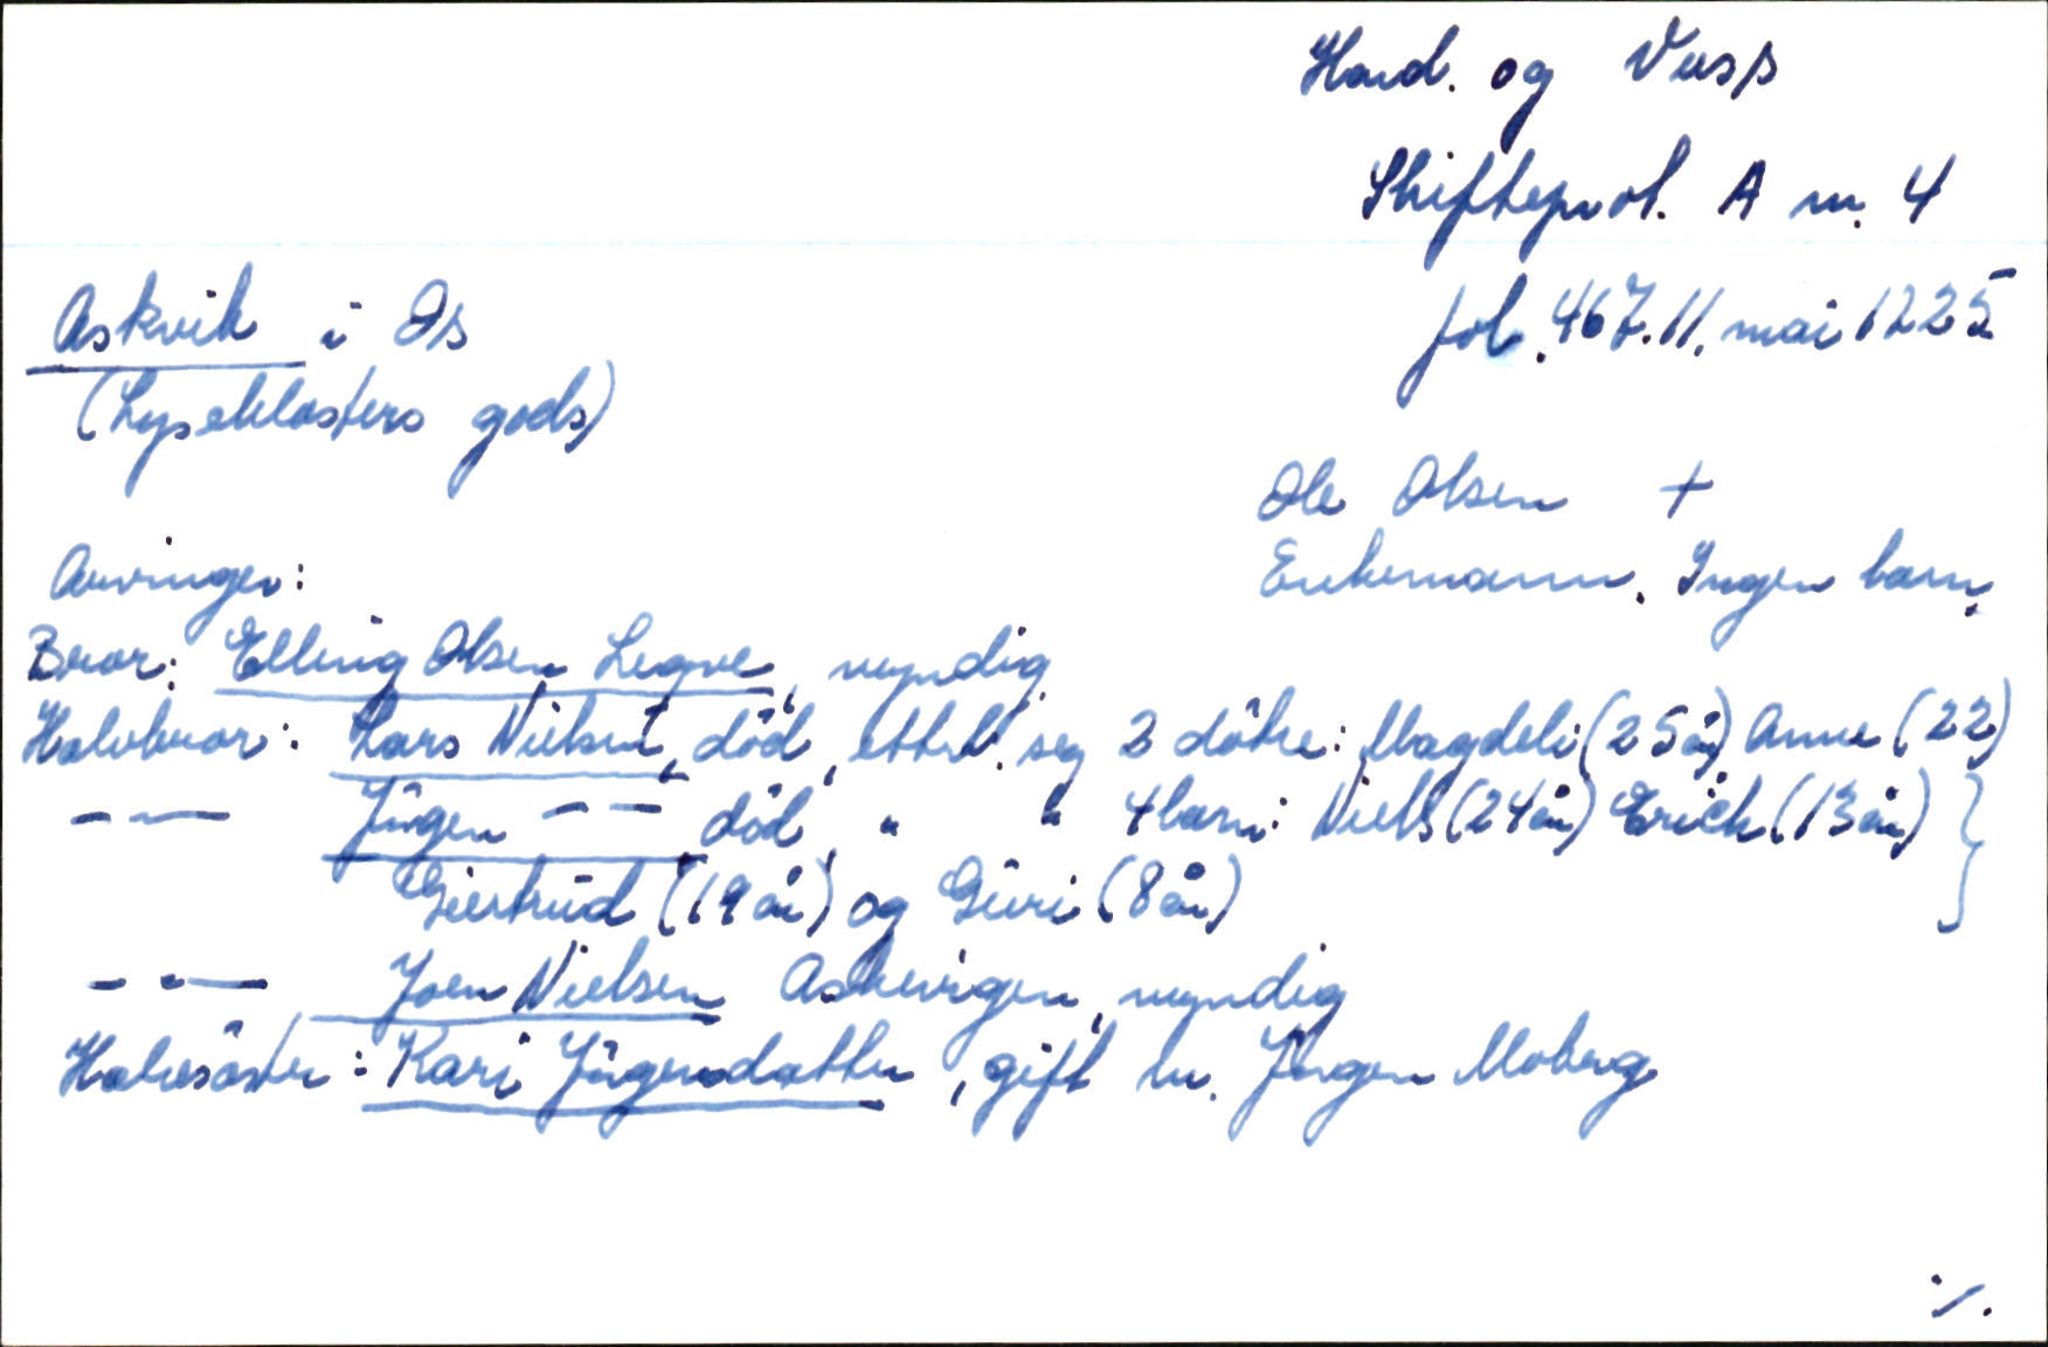 Hard. og Voss
Skifteprot. A nr. 4
Askvik i Os
fol. 467. 11. mai 1725
(Lyseklosters gods)
Ole Olsen +
Arvinger:
Enkemann. Ingen barn.
Bror: Elling Olsen Legve, myndig
Halvbror: Lars Nielsen, död, etterl. seg 2 dötre: Magdeli (25 år) Anne (22)
— — Jörgen — — död, " " 4 barn: Niels (24 år) Erich (13 år) }
Giertrud (19 år) og Guri (8 år)
— — Joen Nielsen Askevigen, myndig
Halvsöster: Kari Jörgensdatter, gift m. Jörgen Moberg
./.